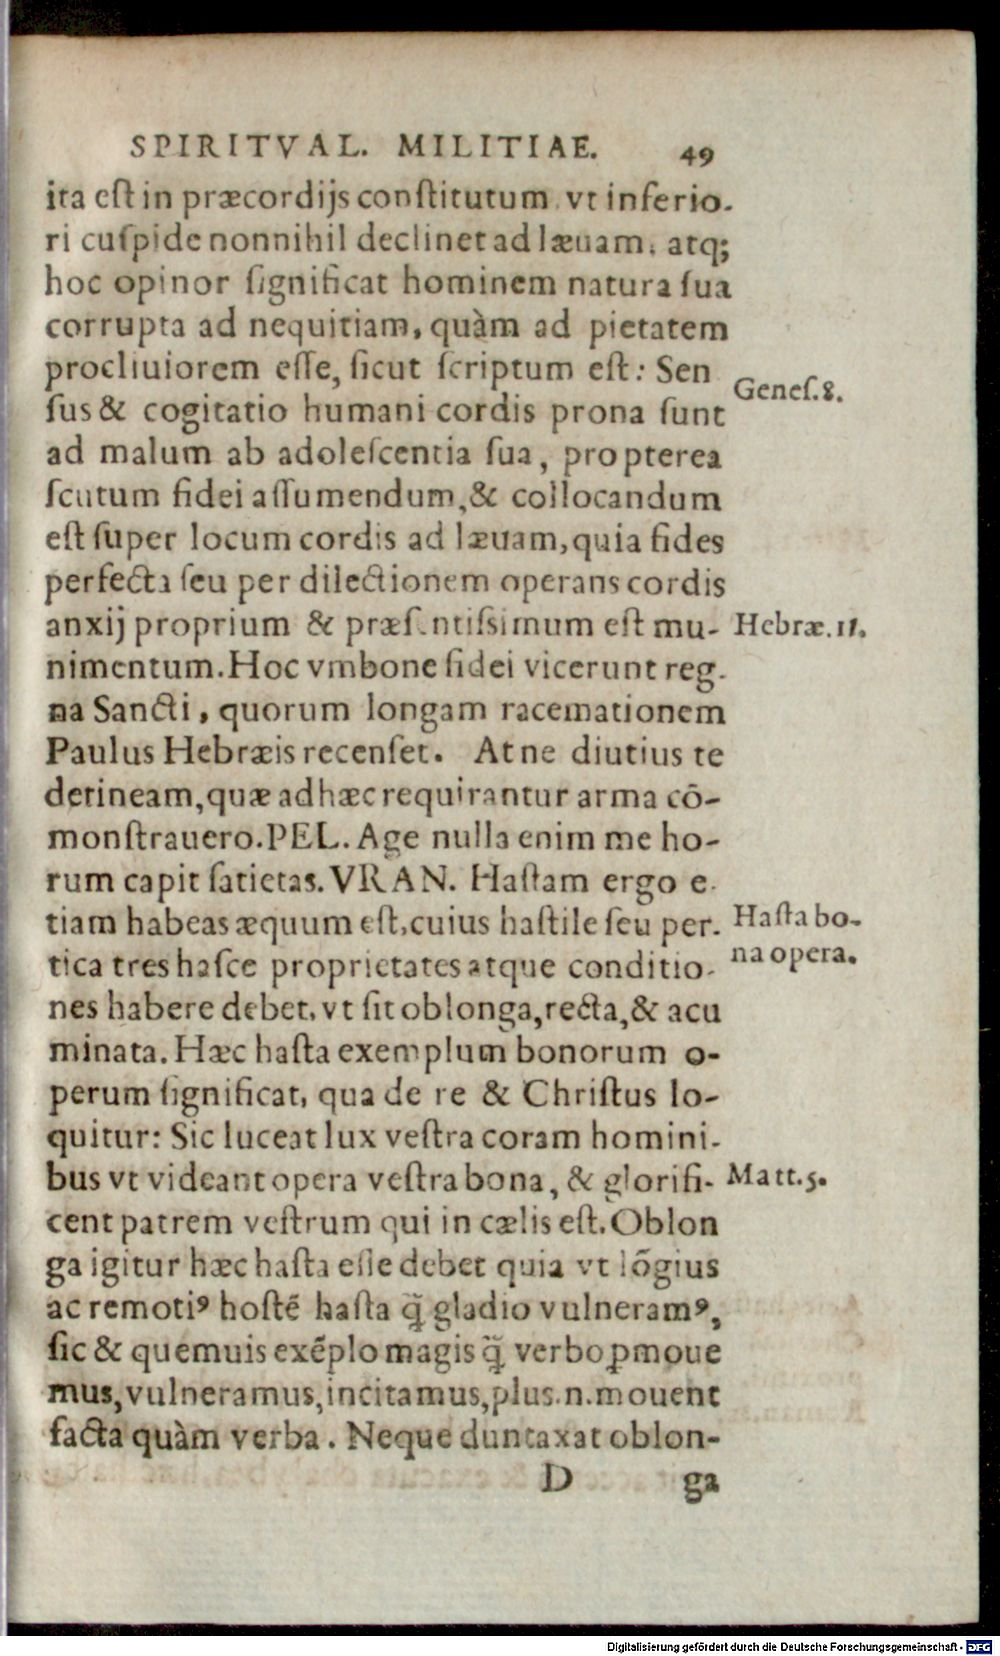 SPIRITVAL. MILITIAE. 49
ita eſt in præcordijs conſtitutum, vt inferio-
ri cuſpide nonnihil declinet ad læuam, atq;
hoc opinor ſignificat hominem natura ſua
corrupta ad nequitiam, quàm ad pietatem
procliuiorem eſſe, ſicut ſcriptum eſt: Sen
Geneſ.8.
ſus & cogitatio humani cordis prona ſunt
ad malum ab adoleſcentia ſua, propterea
ſcutum fidei aſſumendum, & collocandum
eſt ſuper locum cordis ad læuam, quia fides
perfecta ſeu per dilectionem operans cordis
anxij proprium & præſentiſſimum eſt mu-
Hebræ.11.
nimentum. Hoc vmbone fidei vicerunt reg-
na Sancti, quorum longam racemationem
Paulus Hebræis recenſet. At ne diutius te
detineam, quæ ad hæc requirantur arma cõ-
monſtrauero. PEL. Age nulla enim me ho-
rum capit ſatietas. VRAN. Haſtam ergo e-
tiam habeas æquum eſt, cuius haſtile ſeu per-
Haſta bo-
na opera.
tica tres haſce proprietates atque conditio-
nes habere debet, vt ſit oblonga, recta, & acu
minata. Hæc haſta exemplum bonorum o-
perum ſignificat, qua de re & Chriſtus lo-
quitur: Sic luceat lux veſtra coram homini-
bus vt videant opera veſtra bona, & glorifi-
Matt.5.
cent patrem veſtrum qui in cælis eſt. Oblon
ga igitur hæc haſta eſſe debet quia vt lõgius
ac remotiꝰ hoſtẽ haſta q̃ gladio vulneramꝰ,
ſic & quemuis exẽplo magis q̃ verbo ꝓmoue
mus, vulneramus, incitamus, plus.n.mouent
facta quàm verba. Neque duntaxat oblon-
D ga
Digitalisierung gefördert durch die Deutsche Forschungsgemeinschaft - DFG